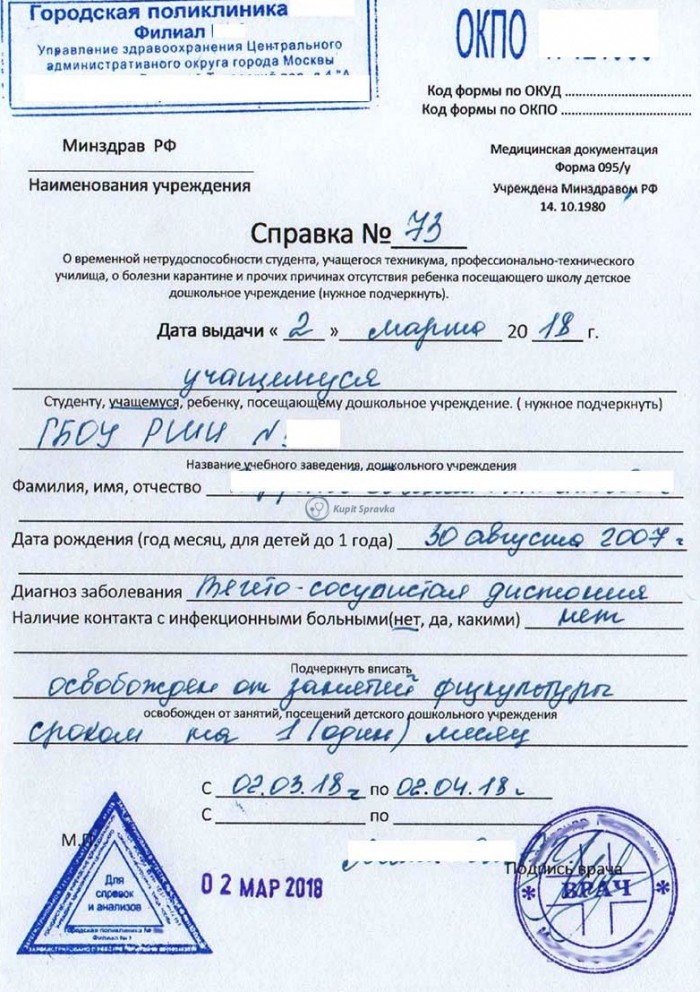 Городская поликлиника
Филиал
Управление здравоохранения Центрального
административного округа города Москвы
ОКПО
Код формы по ОКУД
Код формы по ОКПО
Минздрав РФ
Наименования учреждения
Медицинская документация
Форма 095/у
Учреждена Минздравом РФ
14. 10.1980
Справка № 73
О временной нетрудоспособности студента, учащегося техникума, профессионально-технического
училища, о болезни карантине и прочих причинах отсутствия ребенка посещающего школу детское
дошкольное учреждение (нужное подчеркнуть).
Дата выдачи « 2 » марта 20 18 г.
учащемуся
Студенту, учащемуся, ребенку, посещающему дошкольное учреждение. ( нужное подчеркнуть)
ГБОУ РШИ №
Название учебного заведения, дошкольного учреждения
Фамилия, имя, отчество
Kupit Spravka
Дата рождения (год месяц, для детей до 1 года) 30 августа 2007 г
Диагноз заболевания Вегето-сосудистая дистония
Наличие контакта с инфекционными больными(нет, да, какими) нет
Подчеркнуть вписать
освобожден от занятий физкультуры
освобожден от занятий, посещений детского дошкольного учреждения
сроком на 1 (один) месяц
С 02.03.18г по 02.04.18г
С по
М.П.
Подпись врача
Для
справок
и анализов
Городская поликлиника №
Филиал № 1
02 МАР 2018
* ВРАЧ *